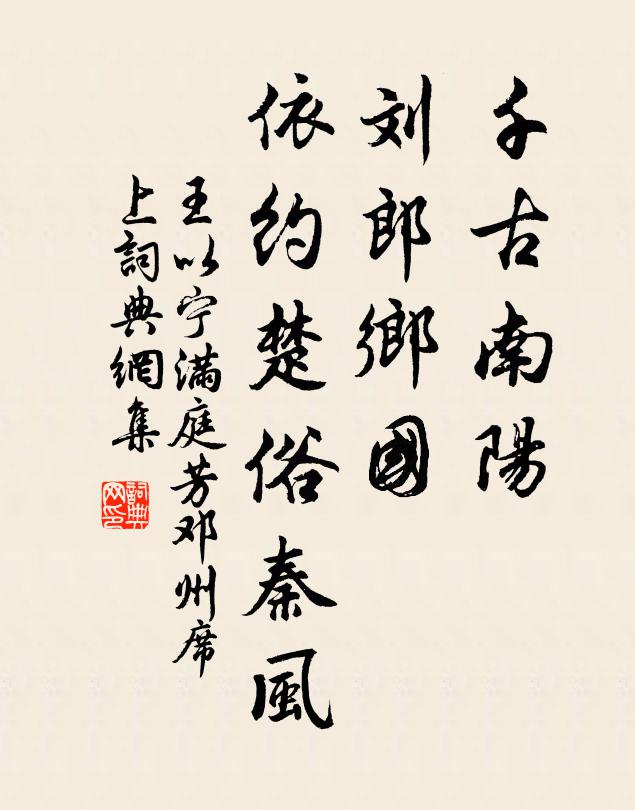 千古南陽
刘郎鄉國
依约楚俗秦風
王以宁满庭芳邓州席
上詞典網集
詞典
网印